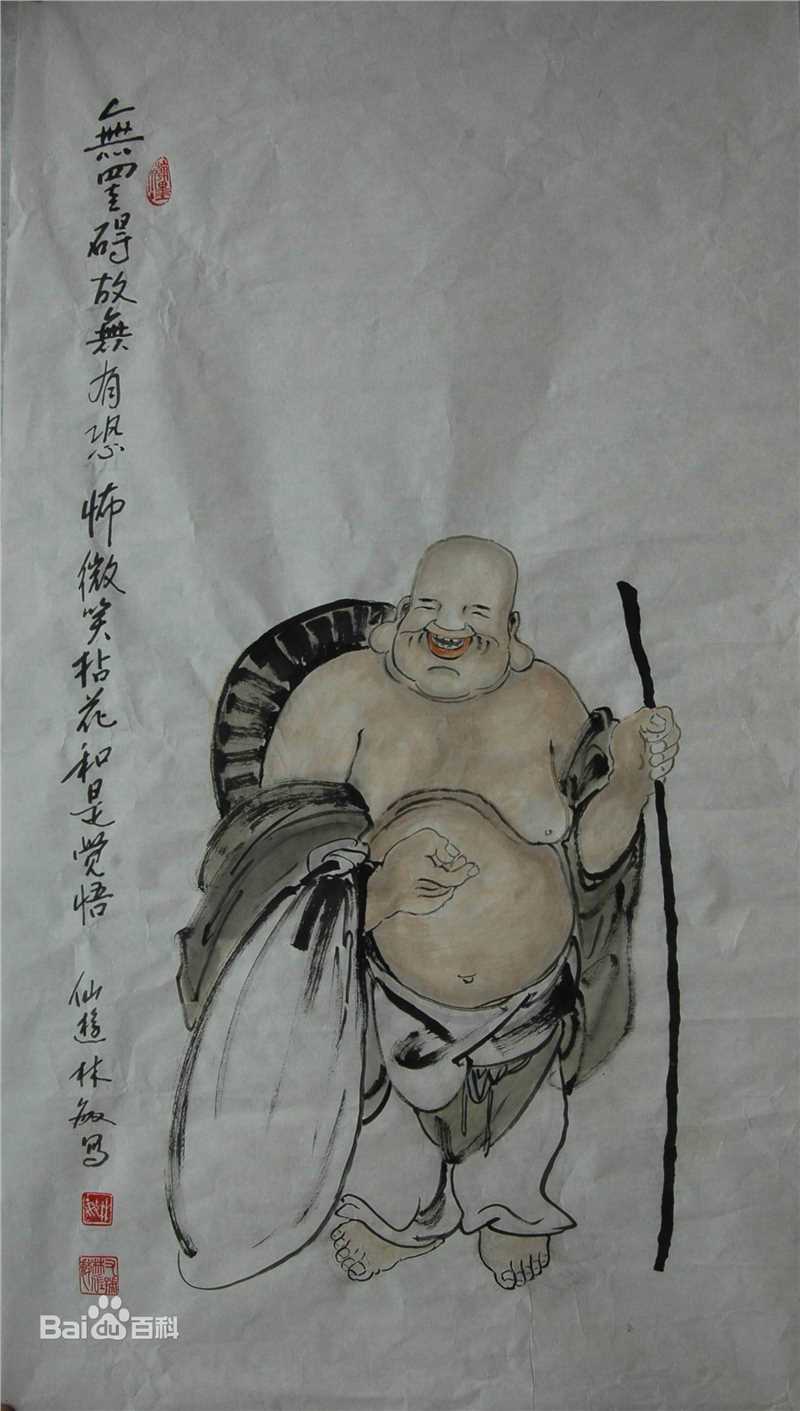 無罣碍故無有恐怖微笑拈花和是覺悟
仙遊林敏写
Bai du 百科